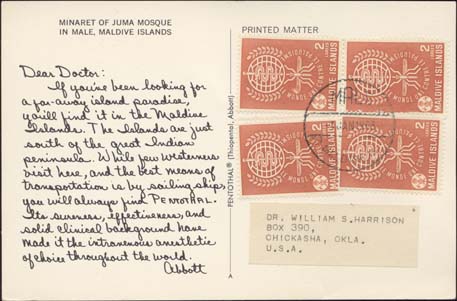 MINARET OF JUMA MOSQUE
IN MALE, MALDIVE ISLANDS
PRINTED MATTER
Dear Doctor:
If you've been looking for
a far-away island paradise,
you'll find it in the Maldive
Islands. The Islands are just
south of the great Indian
peninsula. While few westerners
visit here, and the best means of
transportation is by sailing ship,
you will always find PENTOTHAL.
Its sureness, effectiveness, and
solid clinical background have
made it the intravenous anesthetic
of choice throughout the world.
Abbott
PENTOTHAL® (Thiopental, Abbott)
A
2
MALDIVE ISLANDS
2
MALDIVE ISLANDS
2
MALDIVE ISLANDS
2
MALDIVE ISLANDS
DR. WILLIAM S.HARRISON
BOX 390,
CHICKASHA, OKLA.
U.S.A.